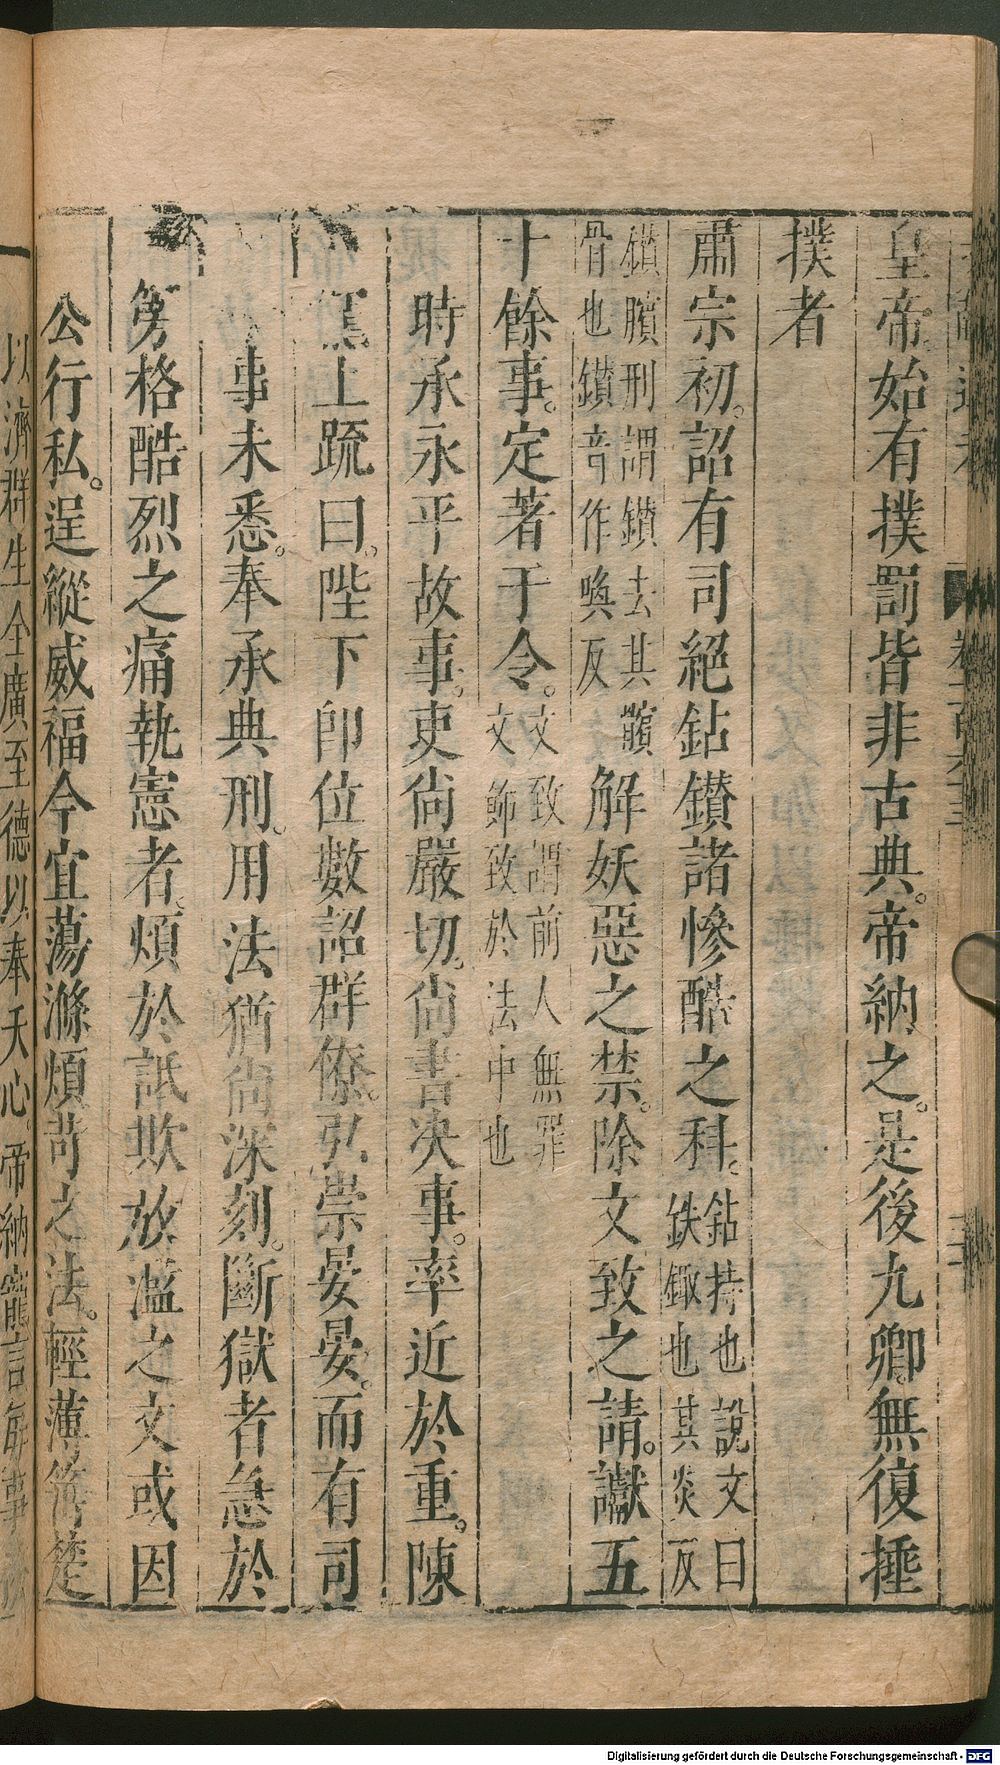 皇帝始有撲罰皆非古典。帝納之。是後九卿。無復捶
撲者
肅宗初。詔有司絕鉆鑽諸慘酷之科。鉆持也說文曰
鉄鋷也其炎反
鑽臏刑謂鑽去其臏
骨也鑽音作喚反
解妖惡之禁。除文致之請。讞五
十餘事。定著于令。文致謂前人無罪
文飾致於法中也
時承永平故事。吏尚嚴切。尚書决事。率近於重。陳
寵上疏曰。陛下即位數詔群僚。弘崇晏晏。而有司
事未悉。奉承典刑。用法猶尚深刻。斷獄者急於
篣格酷烈之痛執憲者。煩於詆欺放濫之文或因
公行私。逞縱威福今宜蕩滌煩苛之法。輕薄箠楚
以濟群生全廣至德以奉天心。帝納寵言每事
Digitalisierung gefördert durch die Deutsche Forschungsgemeinschaft - DFG